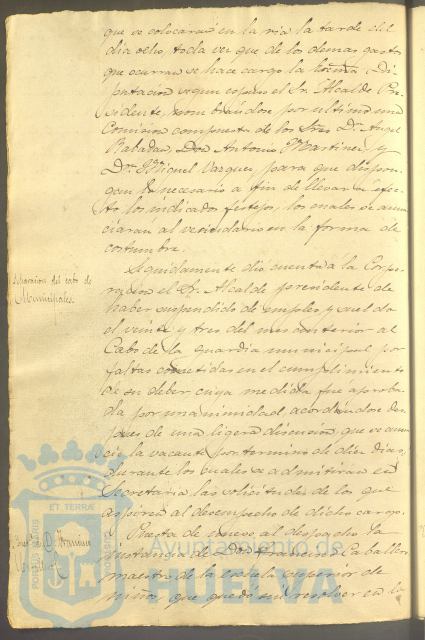 que se colocaran en la ria la tarde del
dia ocho, toda vez que de los demas gastos
que ocurran se hace cargo la Excma. Di-
putacion segun espuso el Sr. Alcalde Pre-
sidente, nombrandose por ultimo una
Comision compuesta de los Sres. Dn. Angel
Rabadan, Don Antonio Martinez y
Dn. Miguel Vazquez, para que dispon-
gan lo necesario a fin de llevar a efec-
to los indicados festejos, los cuales se anun-
ciaran al vecindario en la forma de
costumbre.
Separacion del cabo de
Municipales.
Seguidamente dio cuenta a la Corpo-
racion el Sr. Alcalde presidente de
haber suspendido de empleo y sueldo
el veinte y tres del mes anterior al
Cabo de la guardia municipal por
faltas cometidas en el cumplimiento
de su deber, cuya medida fue aproba-
da por unanimidad, acordandose des-
pues de una ligera discusion, que se anun-
cie la vacante por termino de diez dias,
durante los cuales se admitiran en
Secretaria las solicitudes de los que
aspiren al desempeño de dicho cargo.
Francisco
Puesta de nuevo al despacho la
instancia de Don Francisco Caballero
maestro de la escuela superior de
niños, que quedó sin resolver en la
ET TERRÆ
PORTUS MARIS
CUSTODIA
Ayuntamiento de
HUELVA